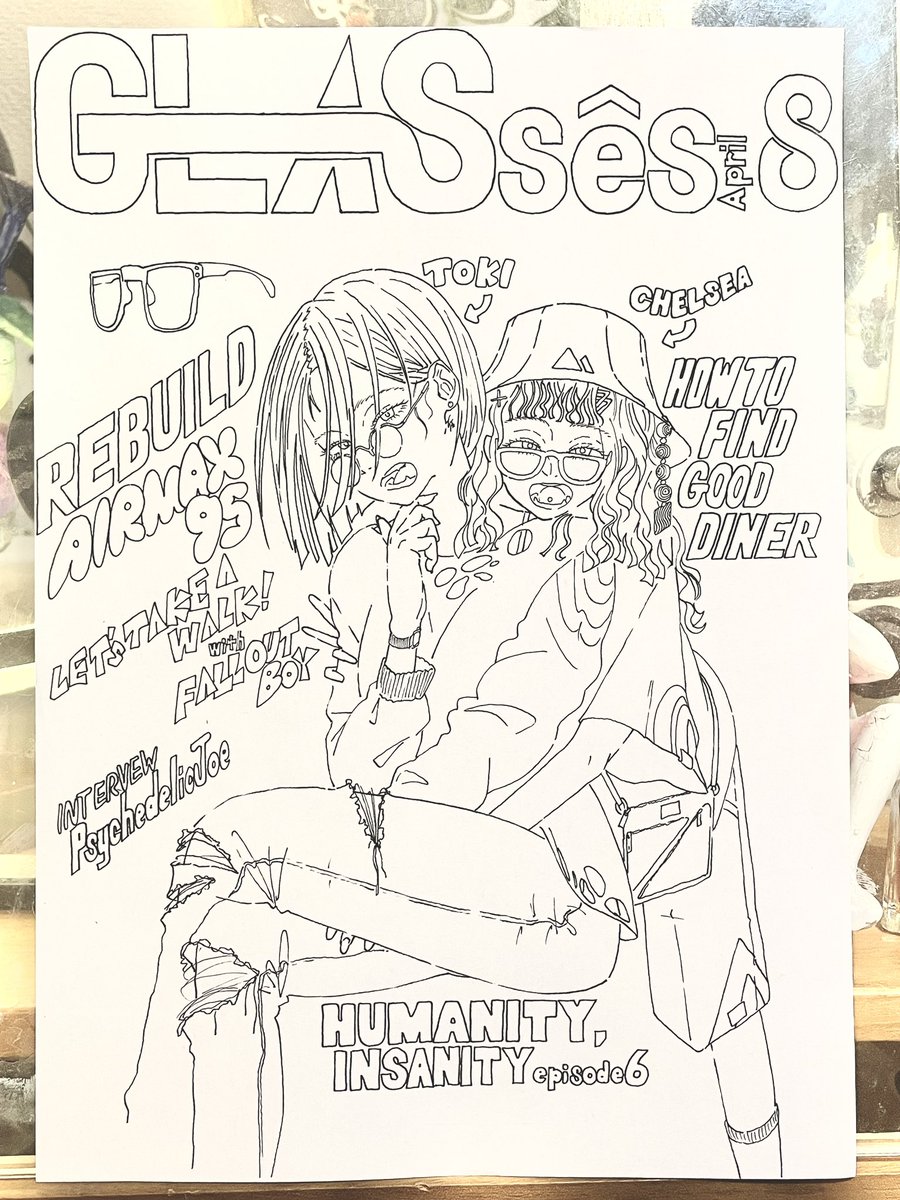 GLASsês April 8
TOKI
CHELSEA
REBUILD
AIRMAX
95
HOW TO
FIND
GOOD
DINER
LET'S TAKE A
WALK!
with
FALL OUT
BOY
INTERVEW
PsychedelicJoe
HUMANITY,
INSANITY episode6